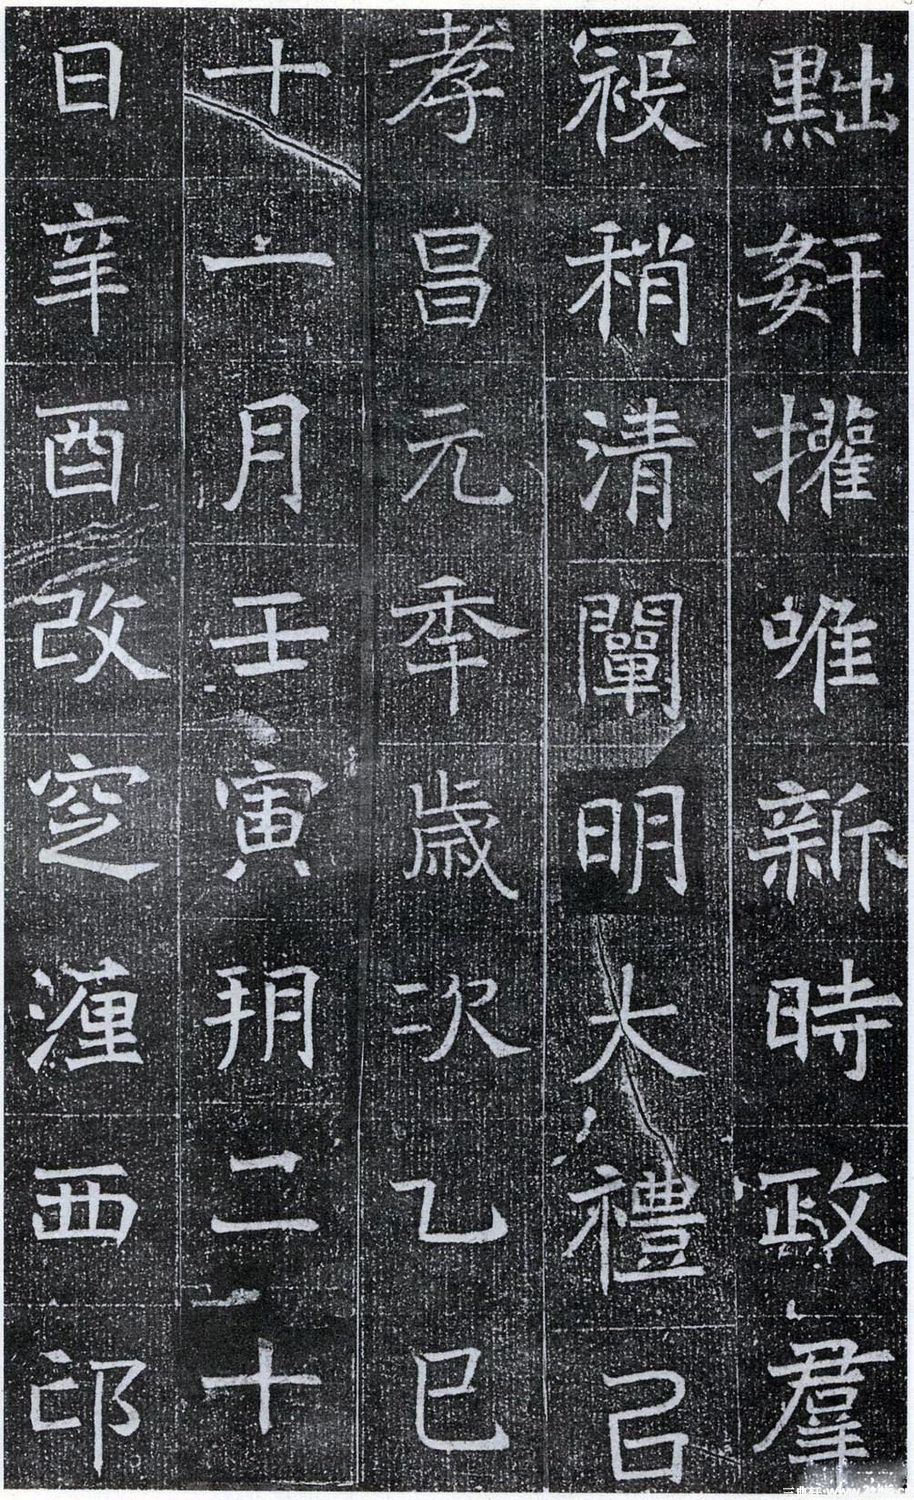 黜姧㩲唯新時政羣
祲稍清闡明大禮㠯
孝昌元秊歲次乙巳
十一月壬寅朔二十
日辛酉改窆瀍西邙